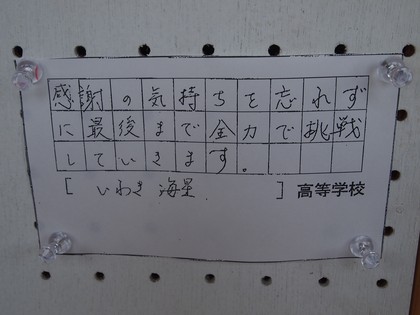 感謝の気持ちを忘れず
に最後まで全力で挑戦
していきます。
[いわき 海星.]高等学校